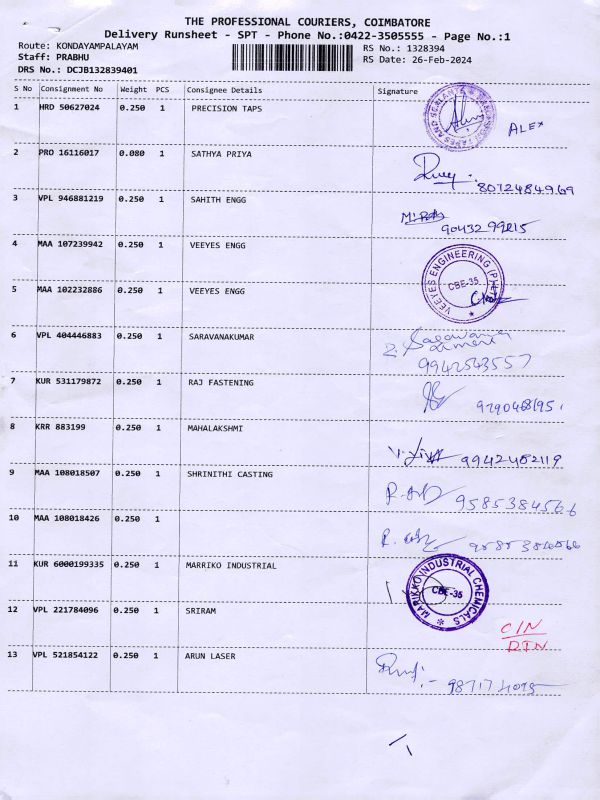 THE PROFESSIONAL COURIERS, COIMBATORE
Delivery Runsheet - SPT - Phone No.:0422-3505555 - Page No.:1
Route: KONDAYAMPALAYAM
RS No.: 1328394
Staff: PRABHU
RS Date: 26-Feb-2024
DRS No.: DCJB132839401
S No Consignment No Weight PCS Consignee Details Signature
1 HRD 50627024 0.250 1 PRECISION TAPS
ALEX
2 PRO 16116017 0.080 1 SATHYA PRIYA
8072484969
3 VPL 946881219 0.250 1 SAHITH ENGG
4 MAA 107239942 0.250 1 VEEYES ENGG
VEEYES ENGINEERING
CBE-35
5 MAA 102232886 0.250 1 VEEYES ENGG
6 VPL 404446883 0.250 1 SARAVANAKUMAR
9942543557
7 KUR 531179872 0.250 1 RAJ FASTENING
8 KRR 883199 0.250 1 MAHALAKSHMI
9942482119
9 MAA 108018507 0.250 1 SHRINITHI CASTING
9585384566
10 MAA 108018426 0.250 1
11 KUR 6000199335 0.250 1 MARRIKO INDUSTRIAL
MARIKKO INDUSTRIAL CHEMICALS
CBE-35
12 VPL 221784096 0.250 1 SRIRAM
C/N
RTN
13 VPL 521854122 0.250 1 ARUN LASER